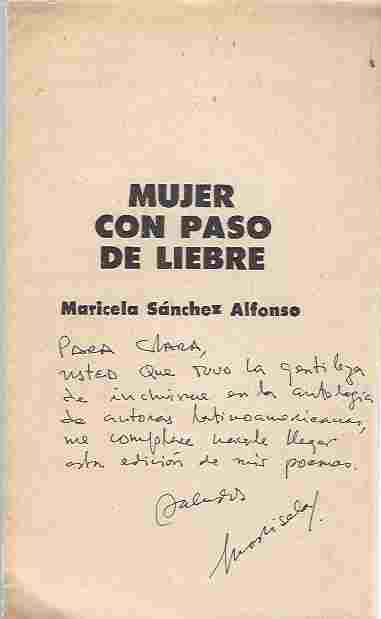 MUJER
CON PASO
DE LIEBRE
Maricela Sánchez Alfonso
PARA CLARA,
usted que tuvo la gentileza
de incluirme en la antología
de autoras latinoamericanas,
me complace hacerle llegar
esta edición de mis poemas.
Saludos
Maricela